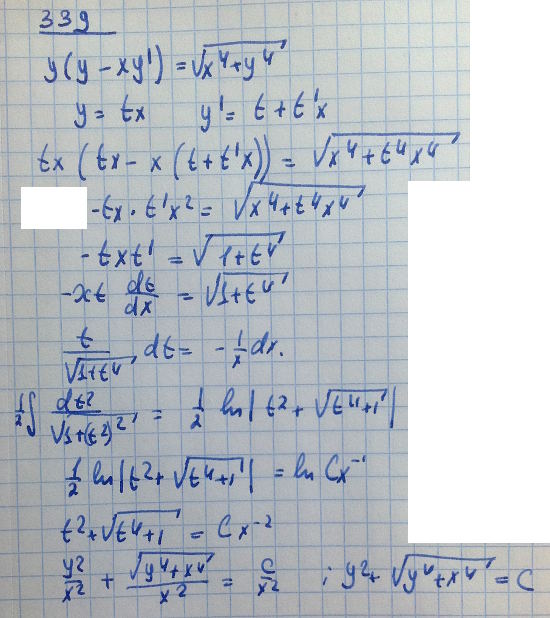 339
y(y - xy') = √(x⁴+y⁴)
y = tx   y' = t + t'x
tx (tx - x (t + t'x)) = √(x⁴ + t⁴x⁴)
-tx · t'x² = √(x⁴+t⁴x⁴)
-txt' = √(1+t⁴)
-xt dt/dx = √(1+t⁴)
t/√(1+t⁴) dt = -1/x dx.
1/2 ∫ dt²/√(1+(t²)²) = 1/2 ln| t² + √(t⁴+1) |
1/2 ln| t² + √(t⁴+1) | = ln Cx⁻¹
t² + √(t⁴+1) = Cx⁻²
y²/x² + √(y⁴+x⁴)/x² = C/x² ; y² + √(y⁴+x⁴) = C